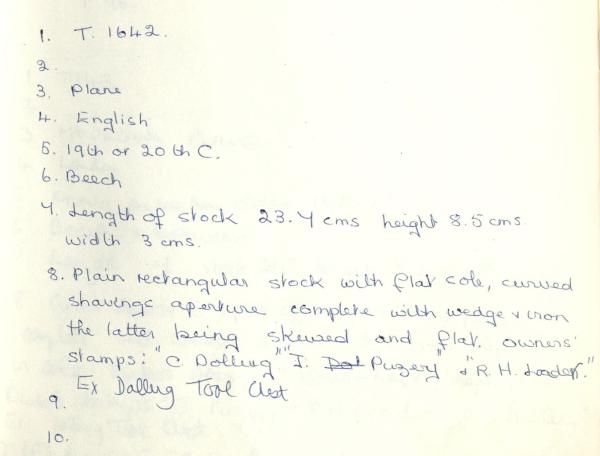 1. T. 1642.
2.
3. Plane
4. English
5. 19th or 20th C.
6. Beech
7. Length of stock 23.7 cms height 8.5 cms.
width 3 cms.
8. Plain rectangular stock with flat sole, curved
shavings aperture complete with wedge & iron
the latter being skewed and flat. owners'
stamps: "C. Dolling" "I. Puzery" & "R. H. Loader."
Ex Dalling Tool Chest
9.
10.